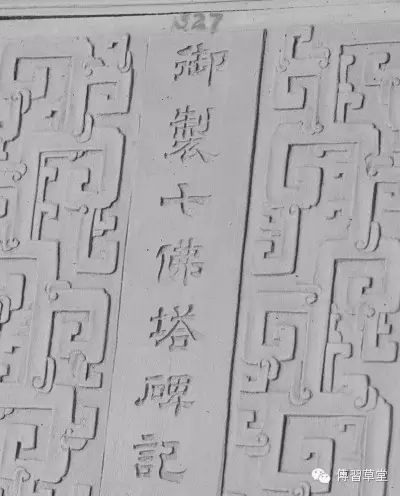 327
御製七佛塔碑記
傳習草堂